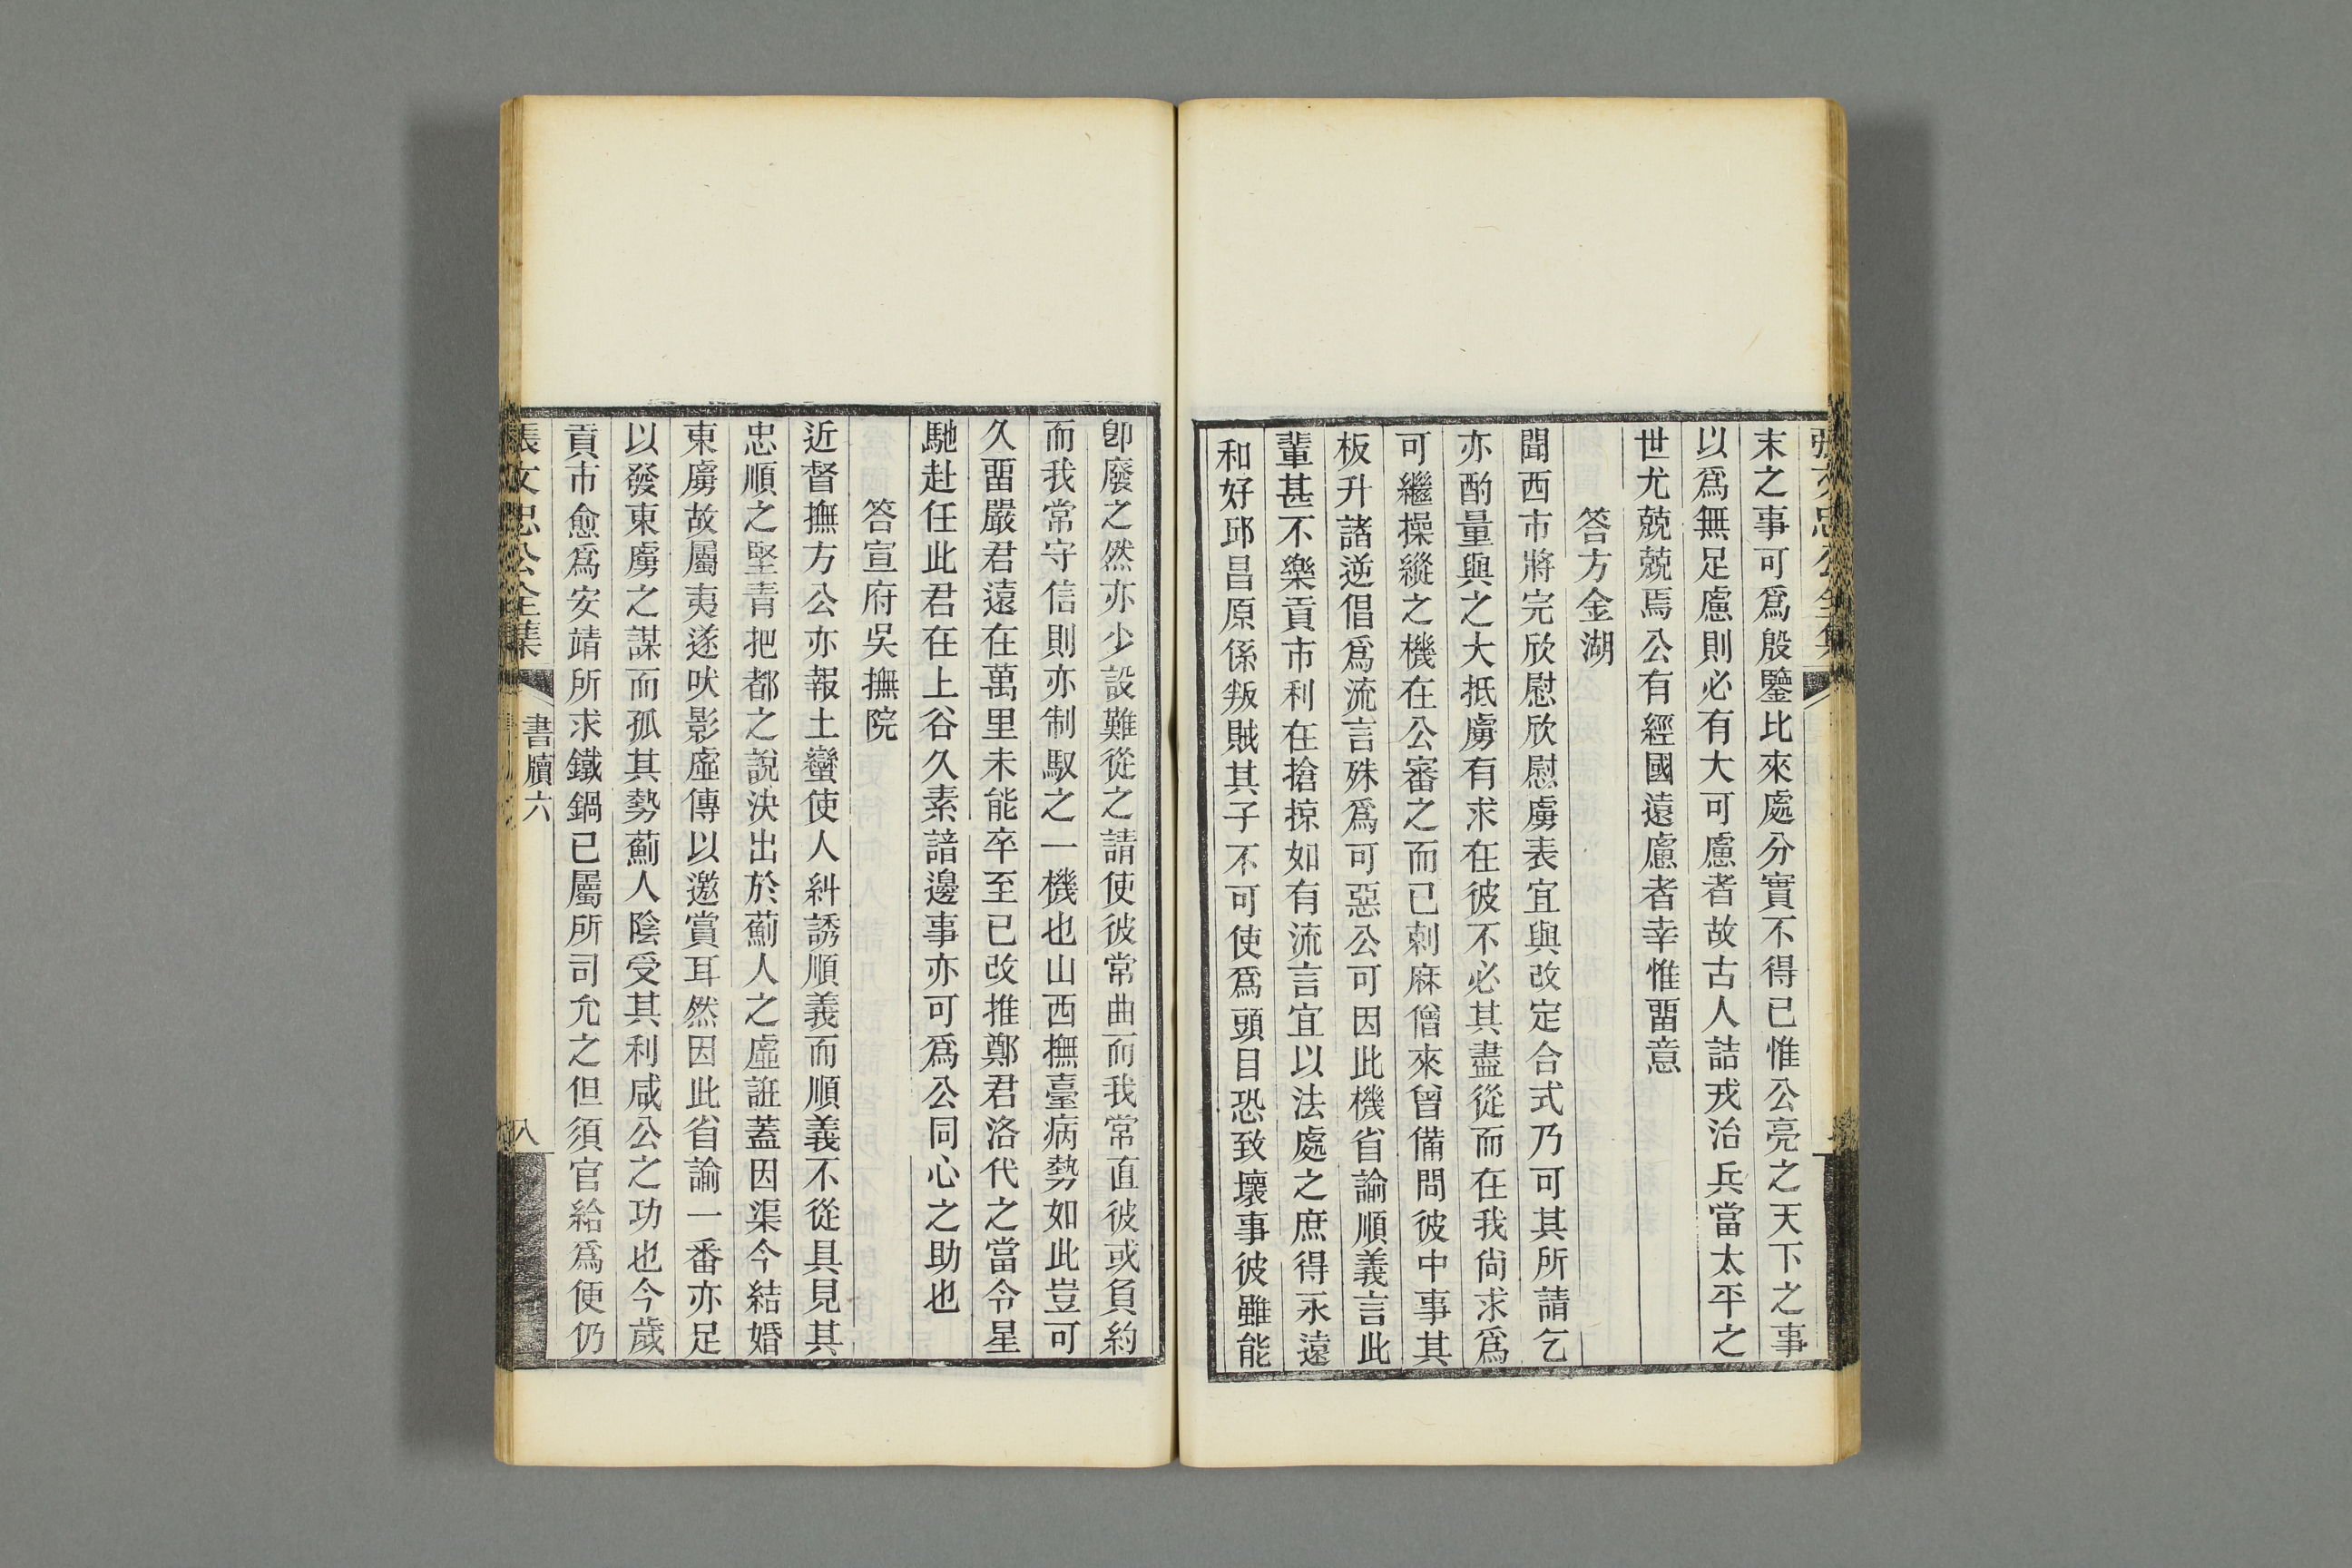 末之事可爲殷鑒比來處分實不得已惟公亮之天下之事
以爲無足慮則必有大可慮者故古人詰戎治兵當太平之
世尤兢兢焉公有經國遠慮者幸惟畱意
答方金湖
聞西市將完欣慰欣慰虜表宜與改定合式乃可其所請乞
亦酌量與之大抵虜有求在彼不必其盡從而在我尚求爲
可繼操縱之機在公審之而已剌麻僧來曾備問彼中事其
板升諸逆倡爲流言殊爲可惡公可因此機省諭順義言此
輩甚不樂貢市利在搶掠如有流言宜以法處之庶得永遠
和好邱昌原係叛賊其子不可使爲頭目恐致壞事彼雖能
卽廢之然亦少設難從之請使彼常曲而我常直彼或負約
而我常守信則亦制馭之一機也山西撫臺病勢如此豈可
久畱嚴君遠在萬里未能卒至已改推鄭君洛代之當令星
馳赴任此君在上谷久素諳邊事亦可爲公同心之助也
答宣府吳撫院
近督撫方公亦報土蠻使人糾誘順義而順義不從具見其
忠順之堅青把都之說決出於薊人之虛誑蓋因渠今結婚
東虜故屬夷遂吠影虛傳以邀賞耳然因此省諭一番亦足
以發東虜之謀而孤其勢薊人陰受其利咸公之功也今歲
貢市愈爲安靖所求鐵鍋已屬所司允之但須官給爲便仍
張文忠公全集
書牘六
八